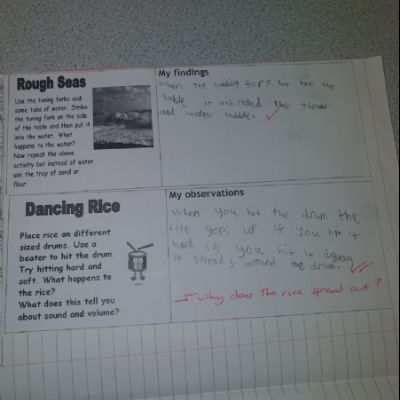 Rough Seas
Use the tuning forks and
some tubs of water. Strike
the tuning fork on the side
of the table and then put it
into the water. What
happens to the water?
Now repeat the above
activity but instead of water
use the tray of sand or
flour.
My findings
when the tuning fork hit the the
table it vibrated the flour
and water bubble.
Dancing Rice
Place rice on different
sized drums. Use a
beater to hit the drum.
Try hitting hard and
soft. What happens to
the rice?
What does this tell you
about sound and volume?
My observations
when you hit the drum the
rice goes up if you hit it
hard if you hit it
it spreads around drum.
why does the rice spread out?